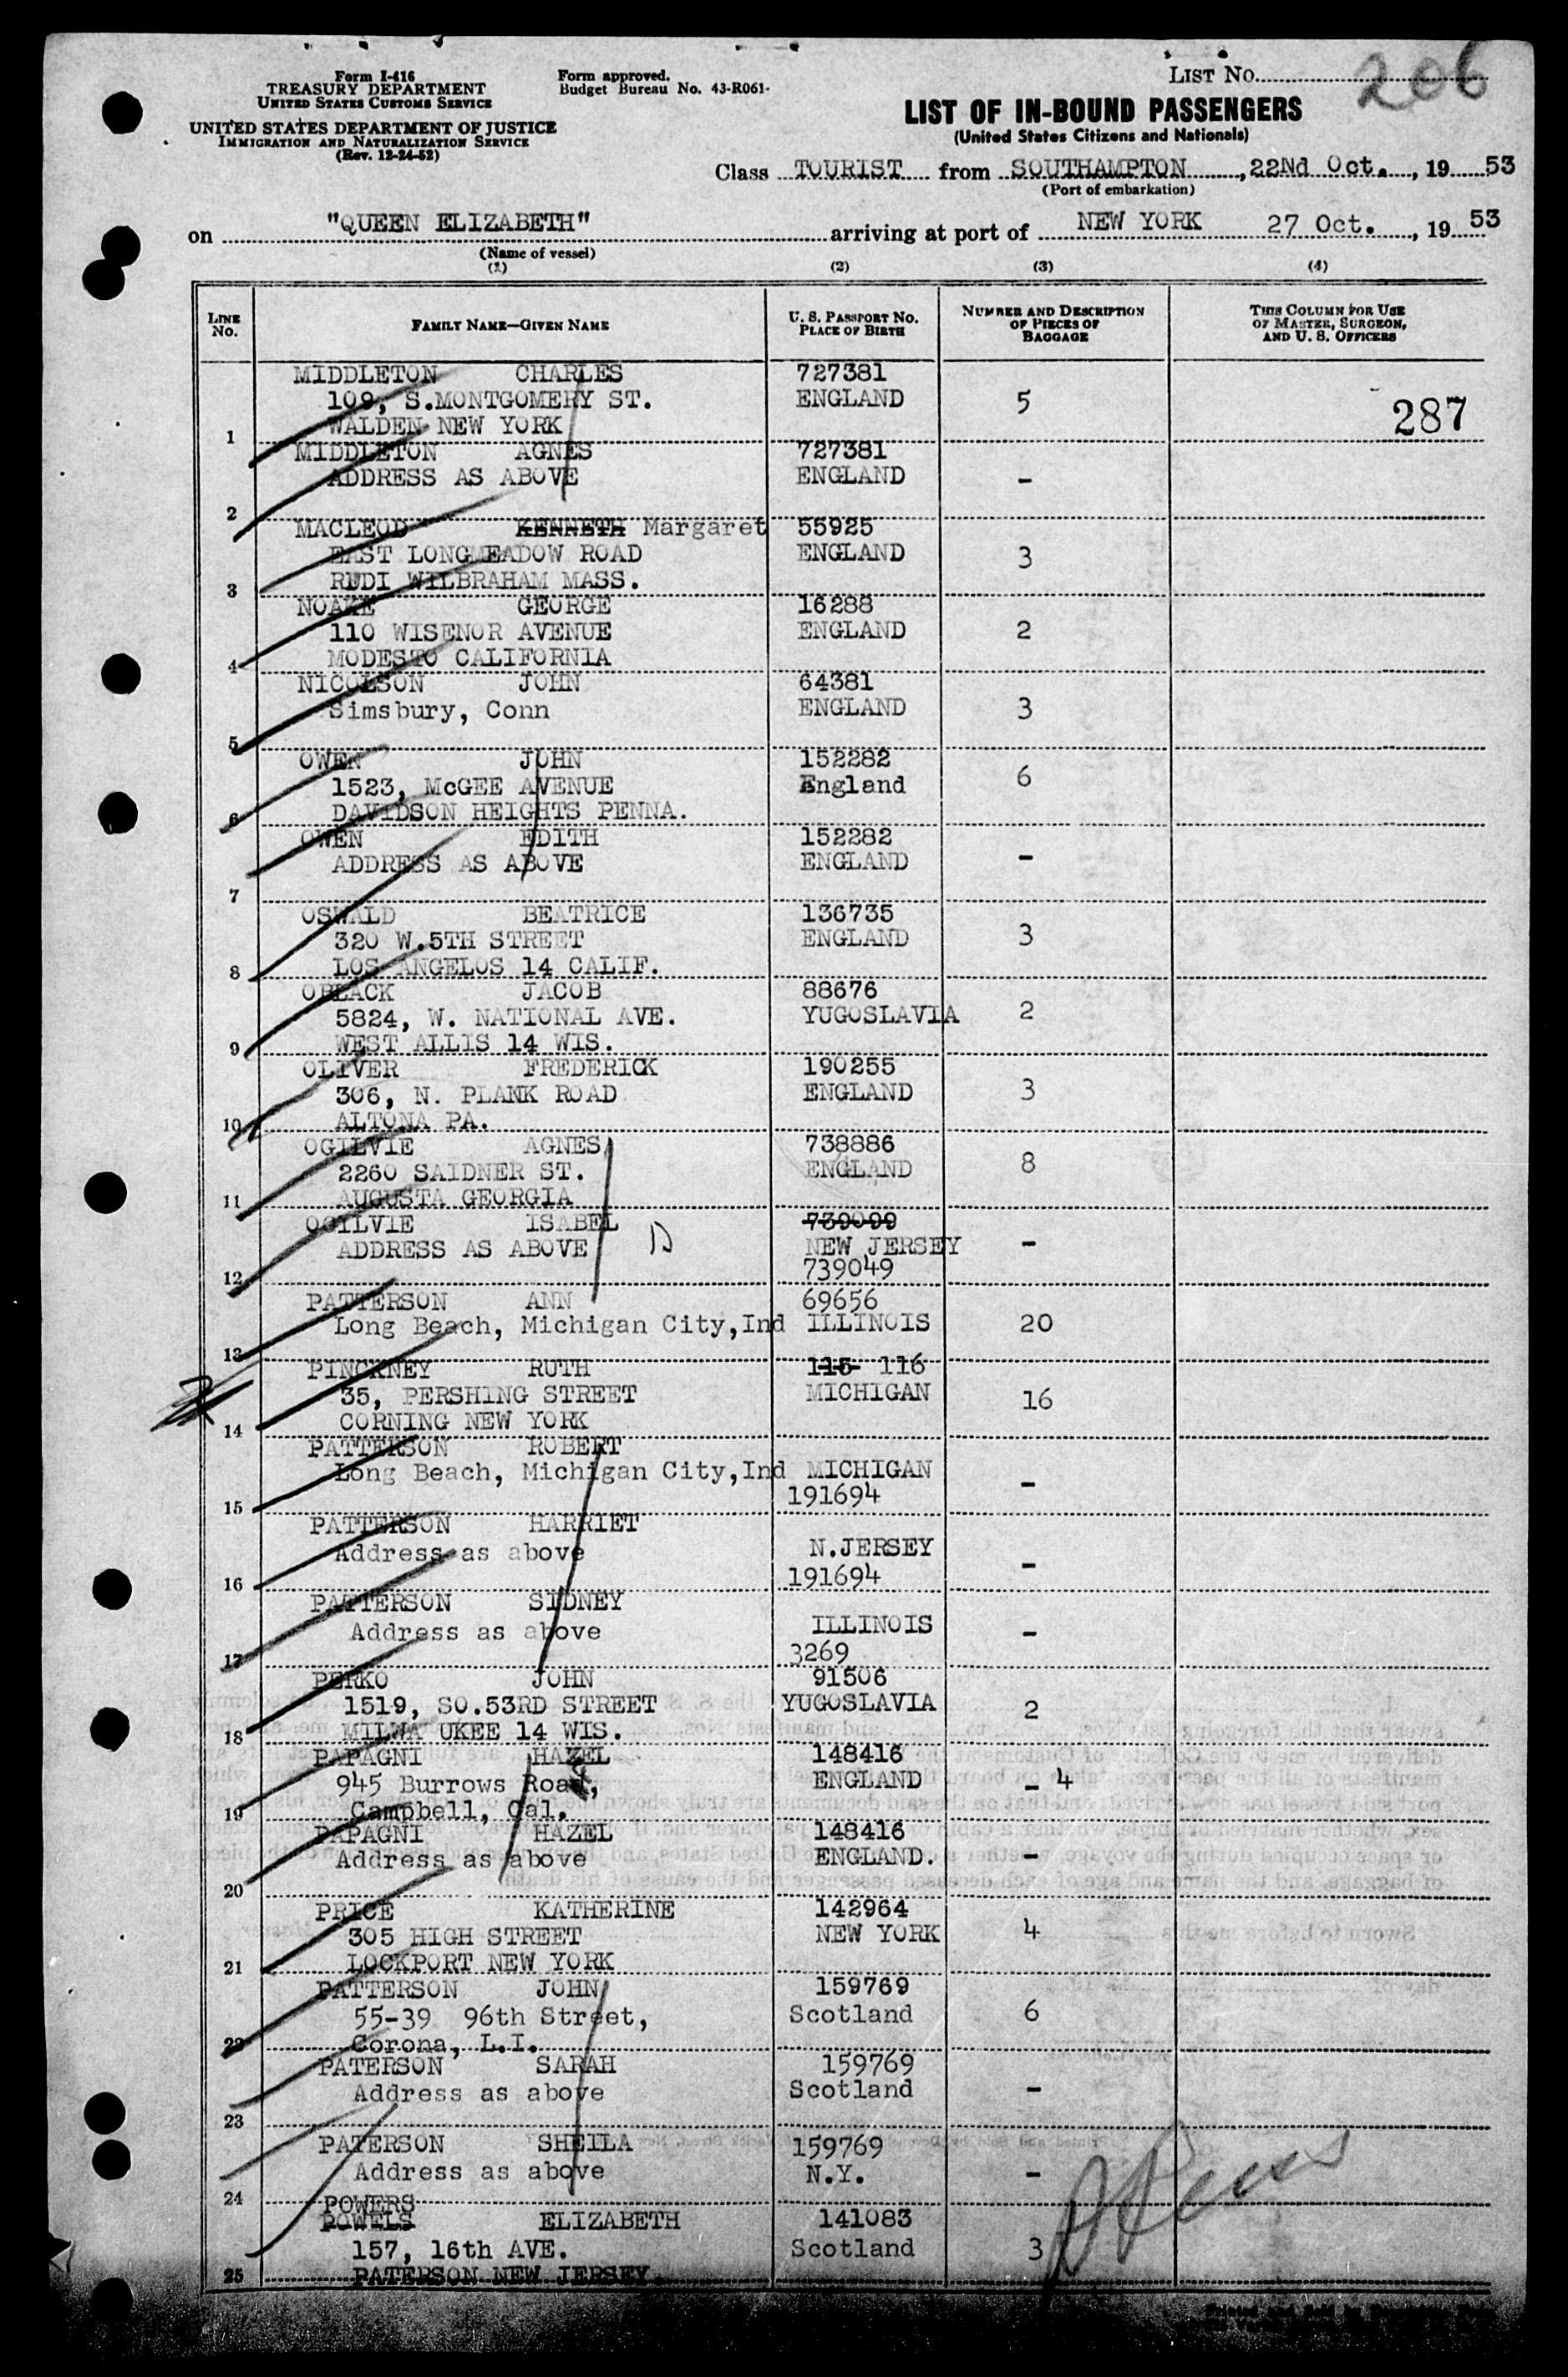 Form I-416
TREASURY DEPARTMENT
UNITED STATES CUSTOMS SERVICE
UNITED STATES DEPARTMENT OF JUSTICE
IMMIGRATION AND NATURALIZATION SERVICE
(Rev. 12-24-52)
Form approved.
Budget Bureau No. 43-R061.
LIST NO. 206
LIST OF IN-BOUND PASSENGERS
(United States Citizens and Nationals)
Class TOURIST from SOUTHAMPTON, 22Nd Oct., 19 53
(Port of embarkation)
on "QUEEN ELIZABETH" arriving at port of NEW YORK 27 Oct., 19 53
(Name of vessel)
(1) (2) (3) (4)
LINE NO.
FAMILY NAME—GIVEN NAME
U. S. PASSPORT NO. PLACE OF BIRTH
NUMBER AND DESCRIPTION OF PIECES OF BAGGAGE
THIS COLUMN FOR USE OF MASTER, SURGEON, AND U. S. OFFICERS
MIDDLETON CHARLES 727381
109, S.MONTGOMERY ST. ENGLAND 5 287
1 WALDEN NEW YORK
MIDDLETON AGNES 727381
ADDRESS AS ABOVE ENGLAND -
2
MACLEOD KENNETH Margaret 55925
EAST LONGMEADOW ROAD ENGLAND 3
3 RUDI WILBRAHAM MASS.
NOAKE GEORGE 16288
110 WISENOR AVENUE ENGLAND 2
4 MODESTO CALIFORNIA
NICOLSON JOHN 64381
Simsbury, Conn ENGLAND 3
5
OWEN JOHN 152282
1523, McGEE AVENUE England 6
6 DAVIDSON HEIGHTS PENNA.
OWEN EDITH 152282
ADDRESS AS ABOVE ENGLAND -
7
OSWALD BEATRICE 136735
320 W.5TH STREET ENGLAND 3
8 LOS ANGELOS 14 CALIF.
OBLACK JACOB 88676
5824, W. NATIONAL AVE. YUGOSLAVIA 2
9 WEST ALLIS 14 WIS.
OLIVER FREDERICK 190255
306, N. PLANK ROAD ENGLAND 3
10 ALTONA PA.
OGILVIE AGNES 738886
2260 SAIDNER ST. ENGLAND 8
11 AUGUSTA GEORGIA
OGILVIE ISABEL 739099
ADDRESS AS ABOVE NEW JERSEY -
12 739049
PATTERSON ANN 69656
Long Beach, Michigan City,Ind ILLINOIS 20
13
PINCKNEY RUTH 115 116
35, PERSHING STREET MICHIGAN 16
14 CORNING NEW YORK
PATTERSON ROBERT
Long Beach, Michigan City,Ind MICHIGAN -
15 191694
PATTERSON HARRIET
Address as above N.JERSEY -
16 191694
PATTERSON SIDNEY
Address as above ILLINOIS -
17 3269
PERKO JOHN 91506
1519, SO.53RD STREET YUGOSLAVIA 2
18 MILWA UKEE 14 WIS.
PAPAGNI HAZEL 148416
945 Burrows Road, ENGLAND - 4
19 Campbell, Cal.
PAPAGNI HAZEL 148416
Address as above ENGLAND. -
20
PRICE KATHERINE 142964
305 HIGH STREET NEW YORK 4
21 LOCKPORT NEW YORK
PATTERSON JOHN 159769
55-39 96th Street, Scotland 6
22 Corona, L.I.
PATERSON SARAH 159769
Address as above Scotland -
23
PATERSON SHEILA 159769
Address as above N.Y. -
24
POWERS
POWELS ELIZABETH 141083
157, 16th AVE. Scotland 3
25 PATERSON NEW JERSEY